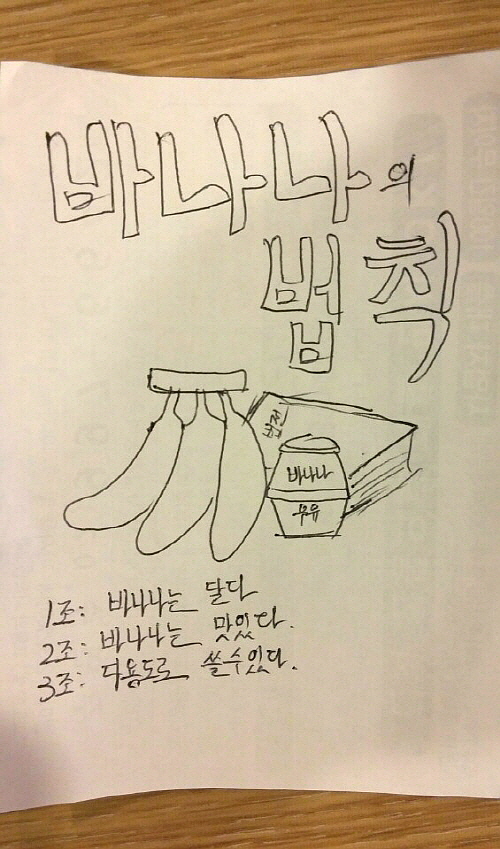 바나나의
법칙
법전
바나나
우유
1조: 바나나는 달다
2조: 바나나는 맛있다.
3조: 다용도로 쓸수있다.